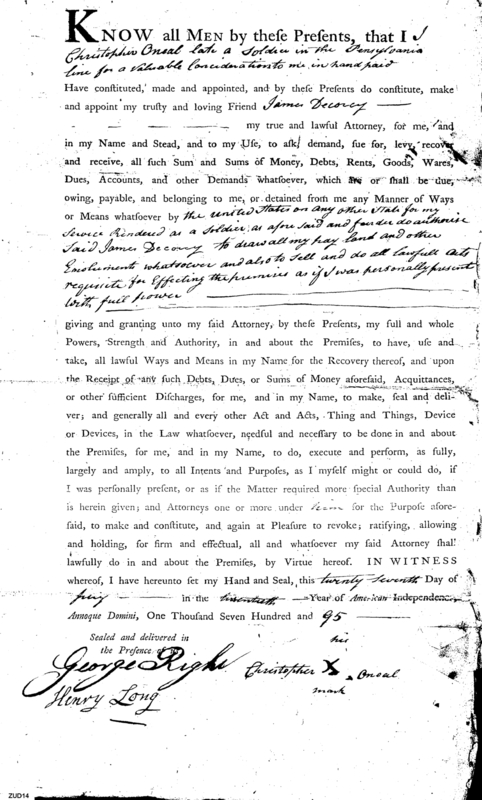 KNOW all MEN by theſe Preſents, that I J
Christopher Onsal late a Soldier in the Pensylvania
line for a Valuable Concideration to me in hand paid
Have conſtituted, made and appointed, and by theſe Preſents do conſtitute, make
and appoint my truſty and loving Friend James Decorcy
my true and lawful Attorney, for me, and
in my Name and Stead, and to my Uſe, to aſk, demand, ſue for, levy, recover
and receive, all ſuch Sum and Sums of Money, Debts, Rents, Goods, Wares,
Dues, Accounts, and other Demands whatſoever, which are or ſhall be due,
owing, payable, and belonging to me, or detained from me any Manner of Ways
or Means whatſoever by the united States or any other State for me
Service Rindered as a Soldier as afore said and farder do authorise
Said James Decorcy to draw all my pay land and other
Emoluments whatsoever and also to Sell and do all lawfull acts
requisite for Effecting the premises as if I was personally present
With full power
giving and granting unto my ſaid Attorney, by theſe Preſents, my full and whole
Powers, Strength and Authority, in and about the Premiſes, to have, uſe and
take, all lawful Ways and Means in my Name for the Recovery thereof, and upon
the Receipt of any ſuch Debts, Dues, or Sums of Money aforeſaid, Acquittances,
or other ſufficient Diſcharges, for me, and in my Name, to make, ſeal and deli-
ver; and generally all and every other Act and Acts, Thing and Things, Device
or Devices, in the Law whatſoever, needful and neceſſary to be done in and about
the Premiſes, for me, and in my Name, to do, execute and perform, as fully,
largely and amply, to all Intents and Purpoſes, as I myſelf might or could do, if
I was perſonally preſent, or as if the Matter required more ſpecial Authority than
is herein given; and Attorneys one or more under him for the Purpoſe afore-
ſaid, to make and conſtitute, and again at Pleaſure to revoke; ratifying, allowing
and holding, for firm and effectual, all and whatſoever my ſaid Attorney ſhall
lawfully do in and about the Premiſes, by Virtue hereof. IN WITNESS
whereof, I have hereunto ſet my Hand and Seal, this twenty seventh Day of
in the Year of American Independence,
Annoque Domini, One Thouſand Seven Hundred and 95
Sealed and delivered in
the Preſence of
his
George Right
Christopher X Onsal
mark
Henry Long
ZUD14